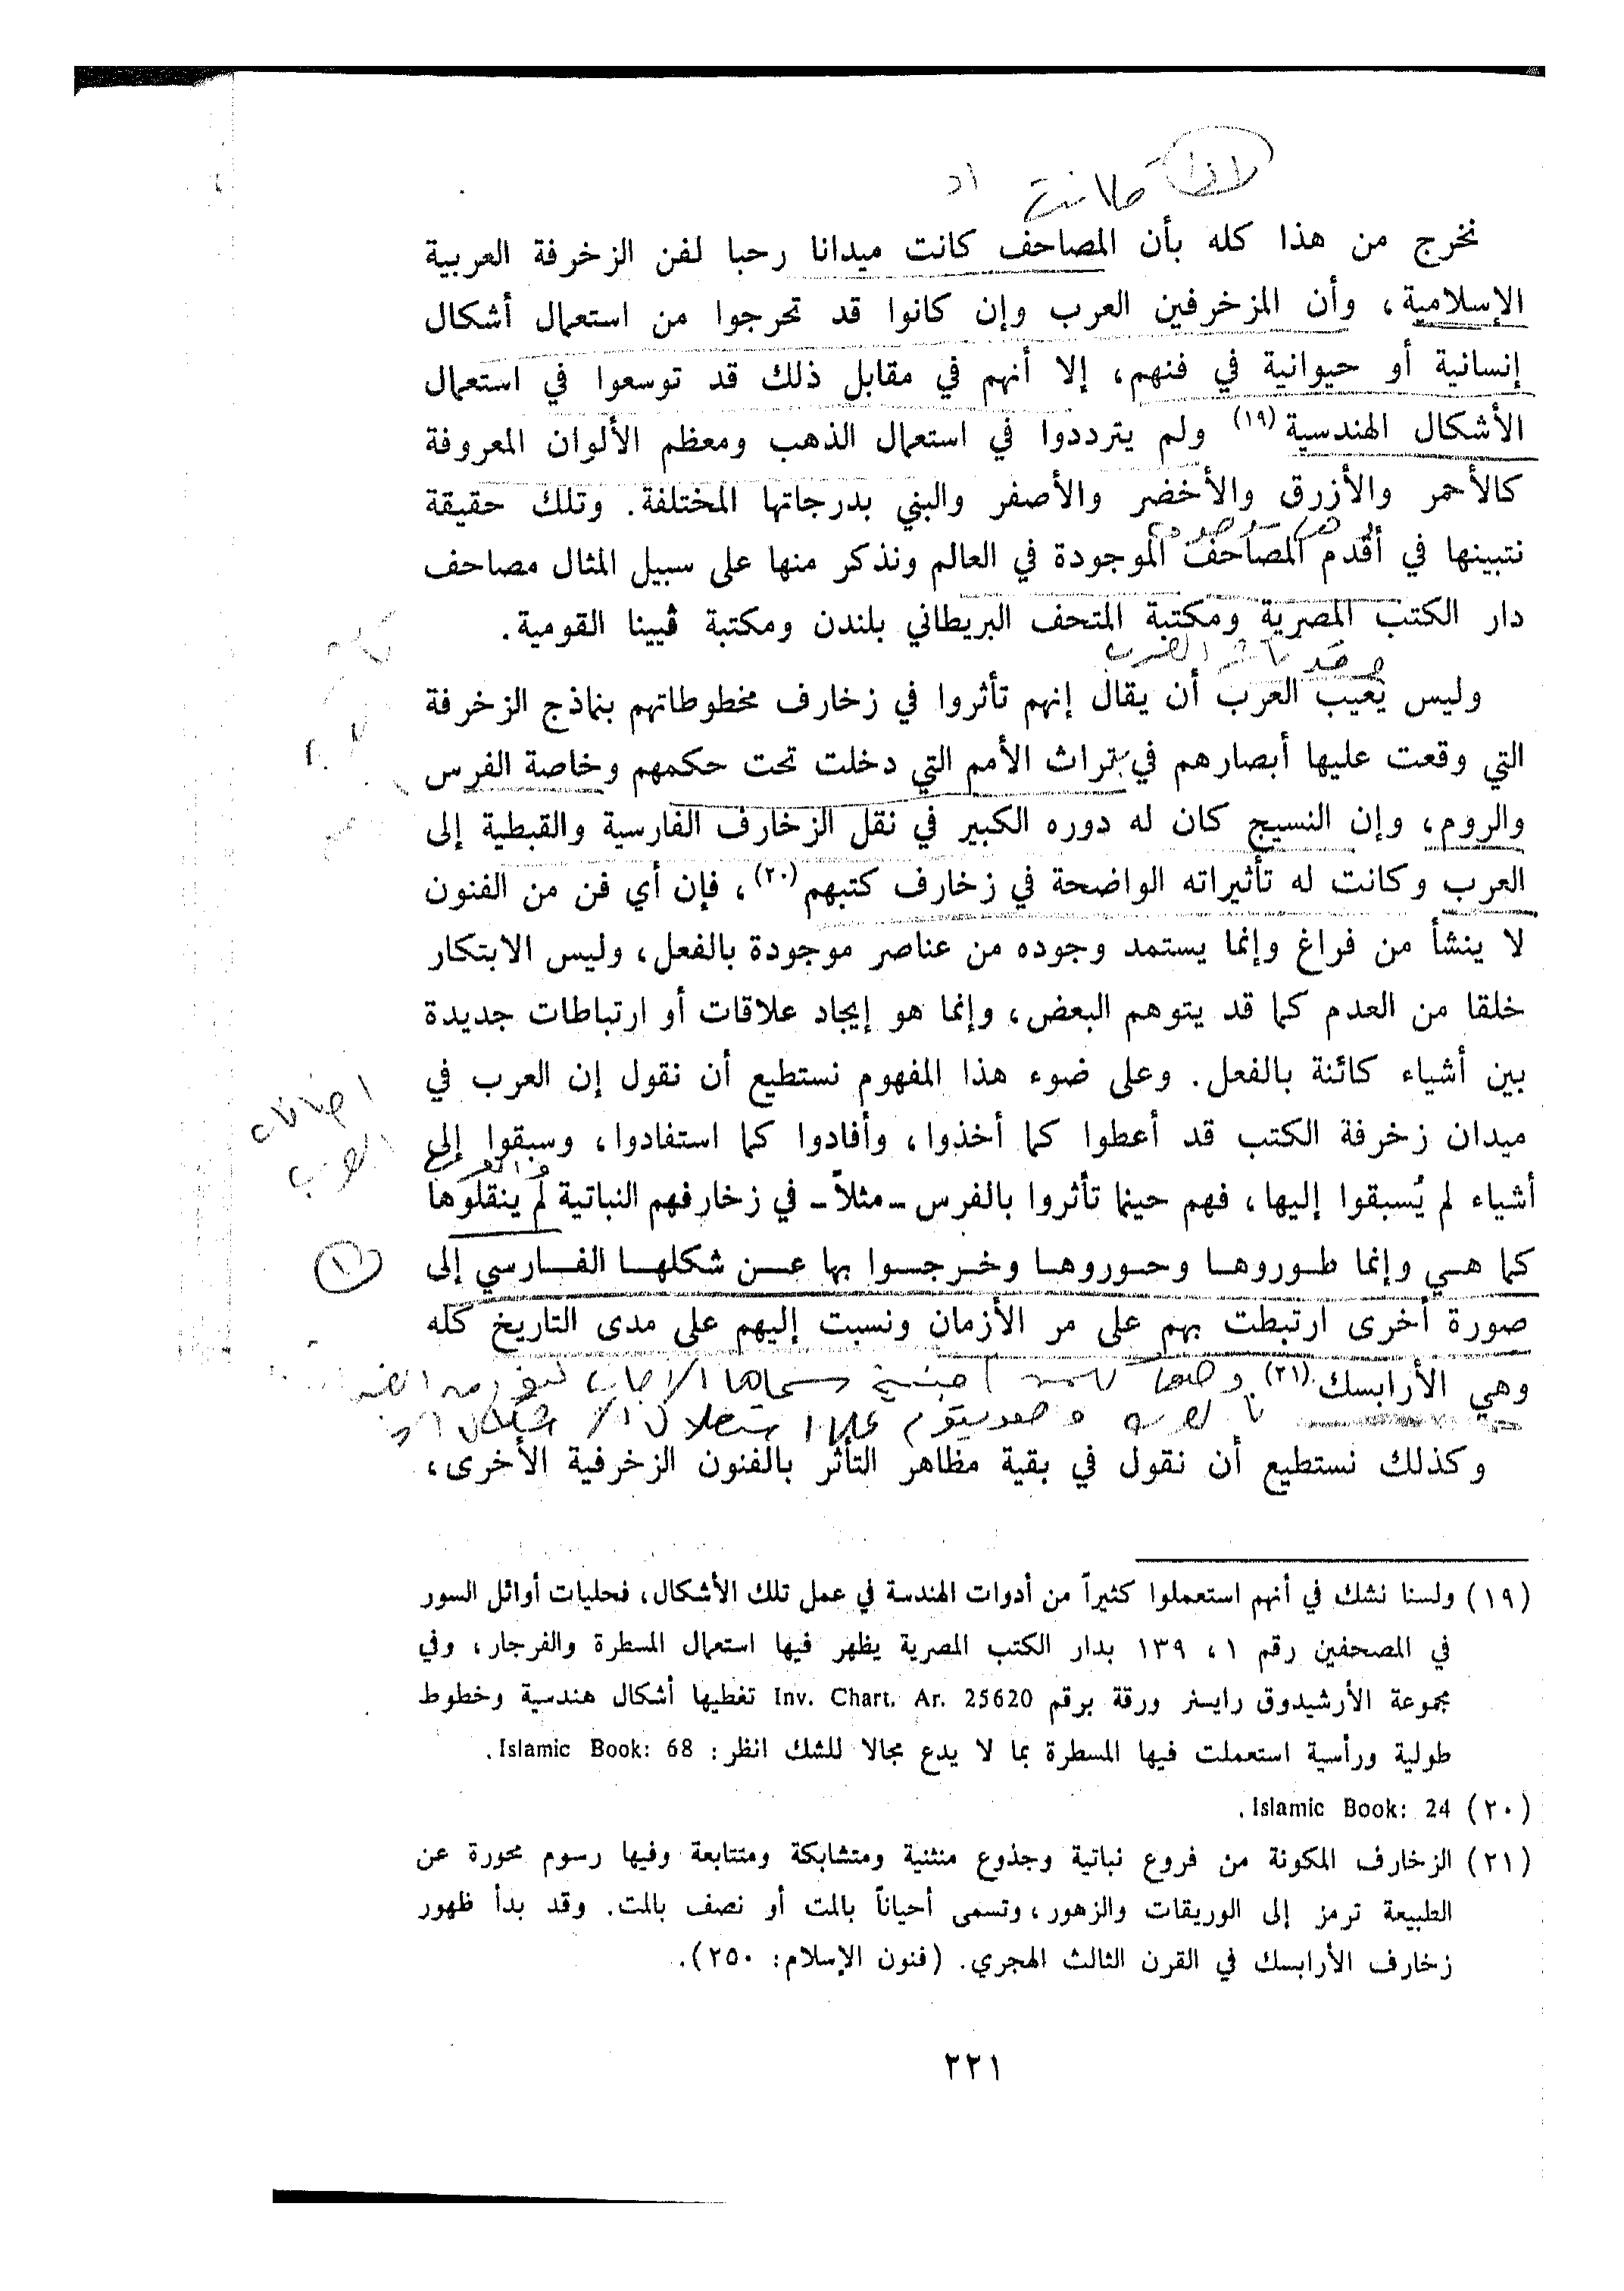 لماذا كانت
نخرج من هذا كله بأن المصاحف كانت ميدانا رحبا لفن الزخرفة العربية
الإسلامية، وأن المزخرفين العرب وإن كانوا قد تحرجوا من استعمال أشكال
إنسانية أو حيوانية في فنهم، إلا أنهم في مقابل ذلك قد توسعوا في استعمال
الأشكال الهندسية (١٩) ولم يترددوا في استعمال الذهب ومعظم الألوان المعروفة
كالأحمر والأزرق والأخضر والأصفر والبني بدرجاتها المختلفة. وتلك حقيقة
نتبينها في أقدم المصاحف الموجودة في العالم ونذكر منها على سبيل المثال مصاحف
دار الكتب المصرية ومكتبة المتحف البريطاني بلندن ومكتبة ڤيينا القومية.
وقد تأثر العرب
وليس يعيب العرب أن يقال إنهم تأثروا في زخارف مخطوطاتهم بنماذج الزخرفة
التي وقعت عليها أبصارهم في تراث الأمم التي دخلت تحت حكمهم وخاصة الفرس
والروم، وإن النسيج كان له دوره الكبير في نقل الزخارف الفارسية والقبطية إلى
العرب وكانت له تأثيراته الواضحة في زخارف كتبهم (٢٠)، فإن أي فن من الفنون
لا ينشأ من فراغ وإنما يستمد وجوده من عناصر موجودة بالفعل، وليس الابتكار
خلقا من العدم كما قد يتوهم البعض، وإنما هو إيجاد علاقات أو ارتباطات جديدة
بين أشياء كائنة بالفعل. وعلى ضوء هذا المفهوم نستطيع أن نقول إن العرب في
اضافات
العرب
ميدان زخرفة الكتب قد أعطوا كما أخذوا، وأفادوا كما استفادوا، وسبقوا إلى
أشياء لم يُسبقوا إليها، فهم حينما تأثروا بالفرس ـ مثلاً ـ في زخارفهم النباتية لم ينقلوها
كما هي وإنما طوروها وحوروها وخرجوا بها عن شكلها الفارسي إلى
صورة أخرى ارتبطت بهم على مر الأزمان ونسبت إليهم على مدى التاريخ كله
وهي الأرابسك (٢١)
وكذلك نستطيع أن نقول في بقية مظاهر التأثر بالفنون الزخرفية الأخرى،
(١٩) ولسنا نشك في أنهم استعملوا كثيراً من أدوات الهندسة في عمل تلك الأشكال، فحليات أوائل السور
في المصحفين رقم ١، ١٣٩ بدار الكتب المصرية يظهر فيها استعمال المسطرة والفرجار، وفي
مجموعة الأرشيدوق رايسنر ورقة برقم Inv. Chart. Ar. 25620 تغطيها أشكال هندسية وخطوط
طولية ورأسية استعملت فيها المسطرة بما لا يدع مجالا للشك انظر: Islamic Book: 68.
(٢٠) Islamic Book: 24.
(٢١) الزخارف المكونة من فروع نباتية وجذوع منثنية ومتشابكة ومتتابعة وفيها رسوم محورة عن
الطبيعة ترمز إلى الوريقات والزهور، وتسمى أحياناً بالمت أو نصف بالمت. وقد بدأ ظهور
زخارف الأرابسك في القرن الثالث الهجري. (فنون الإسلام: ٢٥٠).
٢٢١